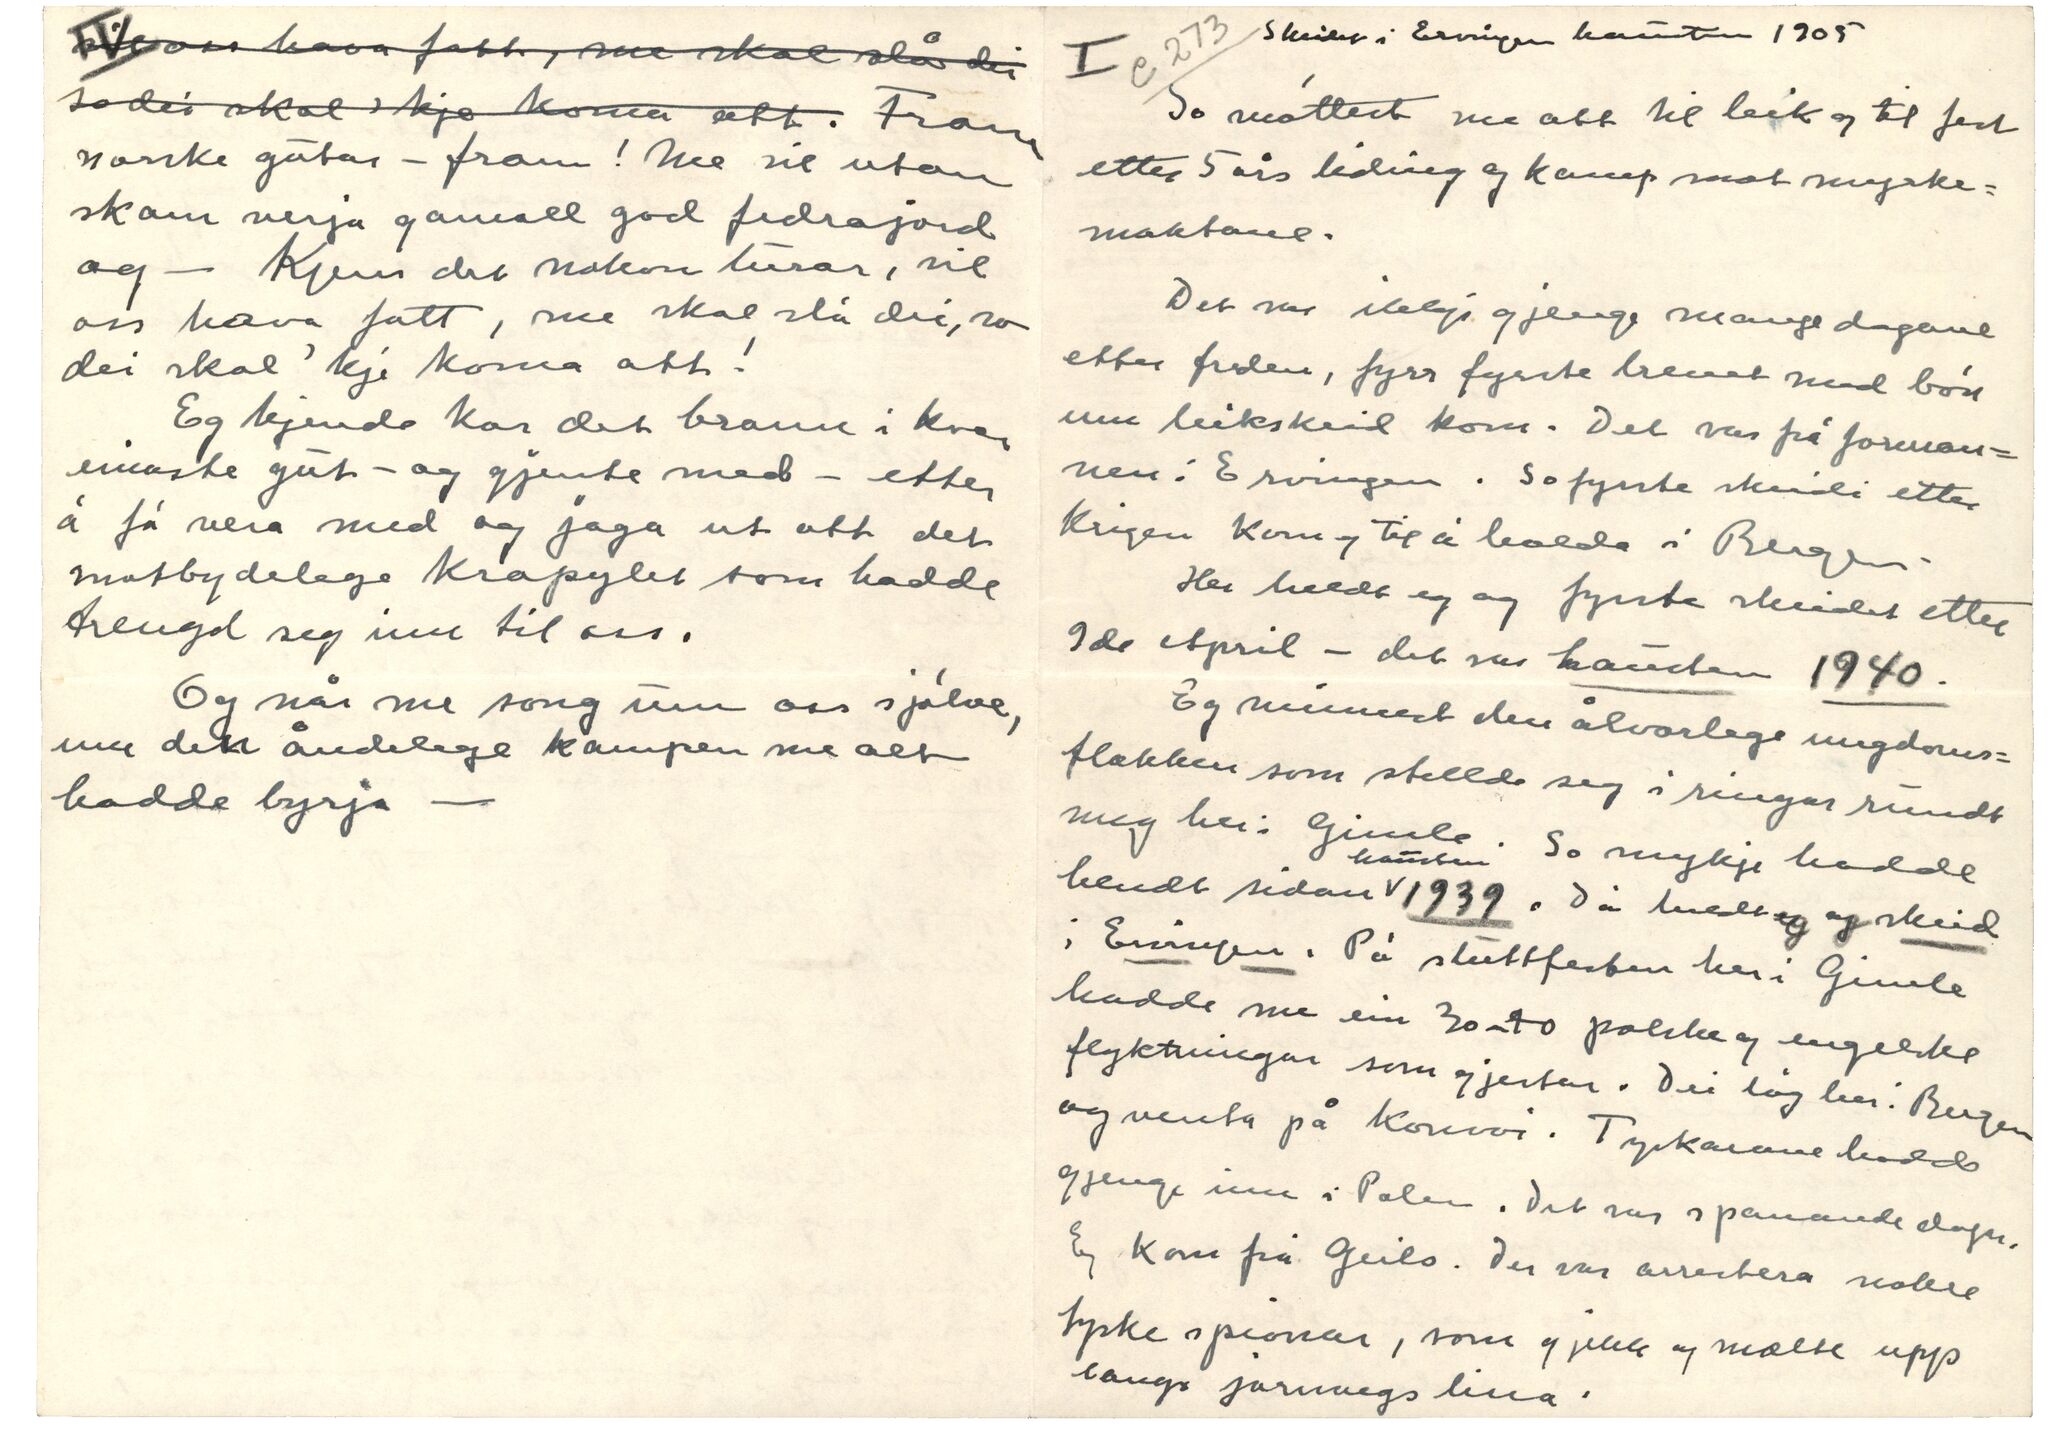 IV
vil oss hava fatt, me skal slå dei
so dei skal 'kje koma att. Fram
norske gutar – fram! Me vil utan
skam verja gamall god fedrajord
og – Kjem det nokon turar, vil
oss hava fatt, me skal slå dei, so
dei skal 'kje koma att!
Eg kjende kor det brann i kvar
einaste gut – og gjente med – etter
å få vera med og jaga ut att det
motbydelege krapylet som hadde
trengd seg inn til oss.
Og når me song um oss sjølve,
um den åndelege kampen me alt
hadde byrja –
I
C 273
Skeidet i Ervingen hausten 1905
So møttest me att til leik og til fest
etter 5 års liding og kamp mot myrke=
maktane.
Det var ikkje gjenge mange dagane
etter freden, fyrr fyrste brevet med bøn
um leikskeid kom. Det var frå forman=
nen i Ervingen. So fyrste skeidi etter
Krigen kom eg til å halda i Bergen.
Her heldt eg og fyrste skeidet etter
9de April – det var hausten 1940.
Eg minnest den ålvorlege ungdoms=
flokken som stellde seg i ringar rundt
meg her i Gimle. So mykje hadde
hendt sidan hausten 1939. Då heldt eg og skeid
i Ervingen. På sluttfesten her i Gimle
hadde me ein 30-40 polske og engelske
flyktningar som gjester. Dei låg her i Bergen
og venta på Konvoi. Tyskarane hadde
gjenge inn i Polen. Det var spanande dagar.
Eg kom frå Geilo. Der var arrestera nokre
tyske spionar, som gjekk og mælte upp
langs jarnvegslina.